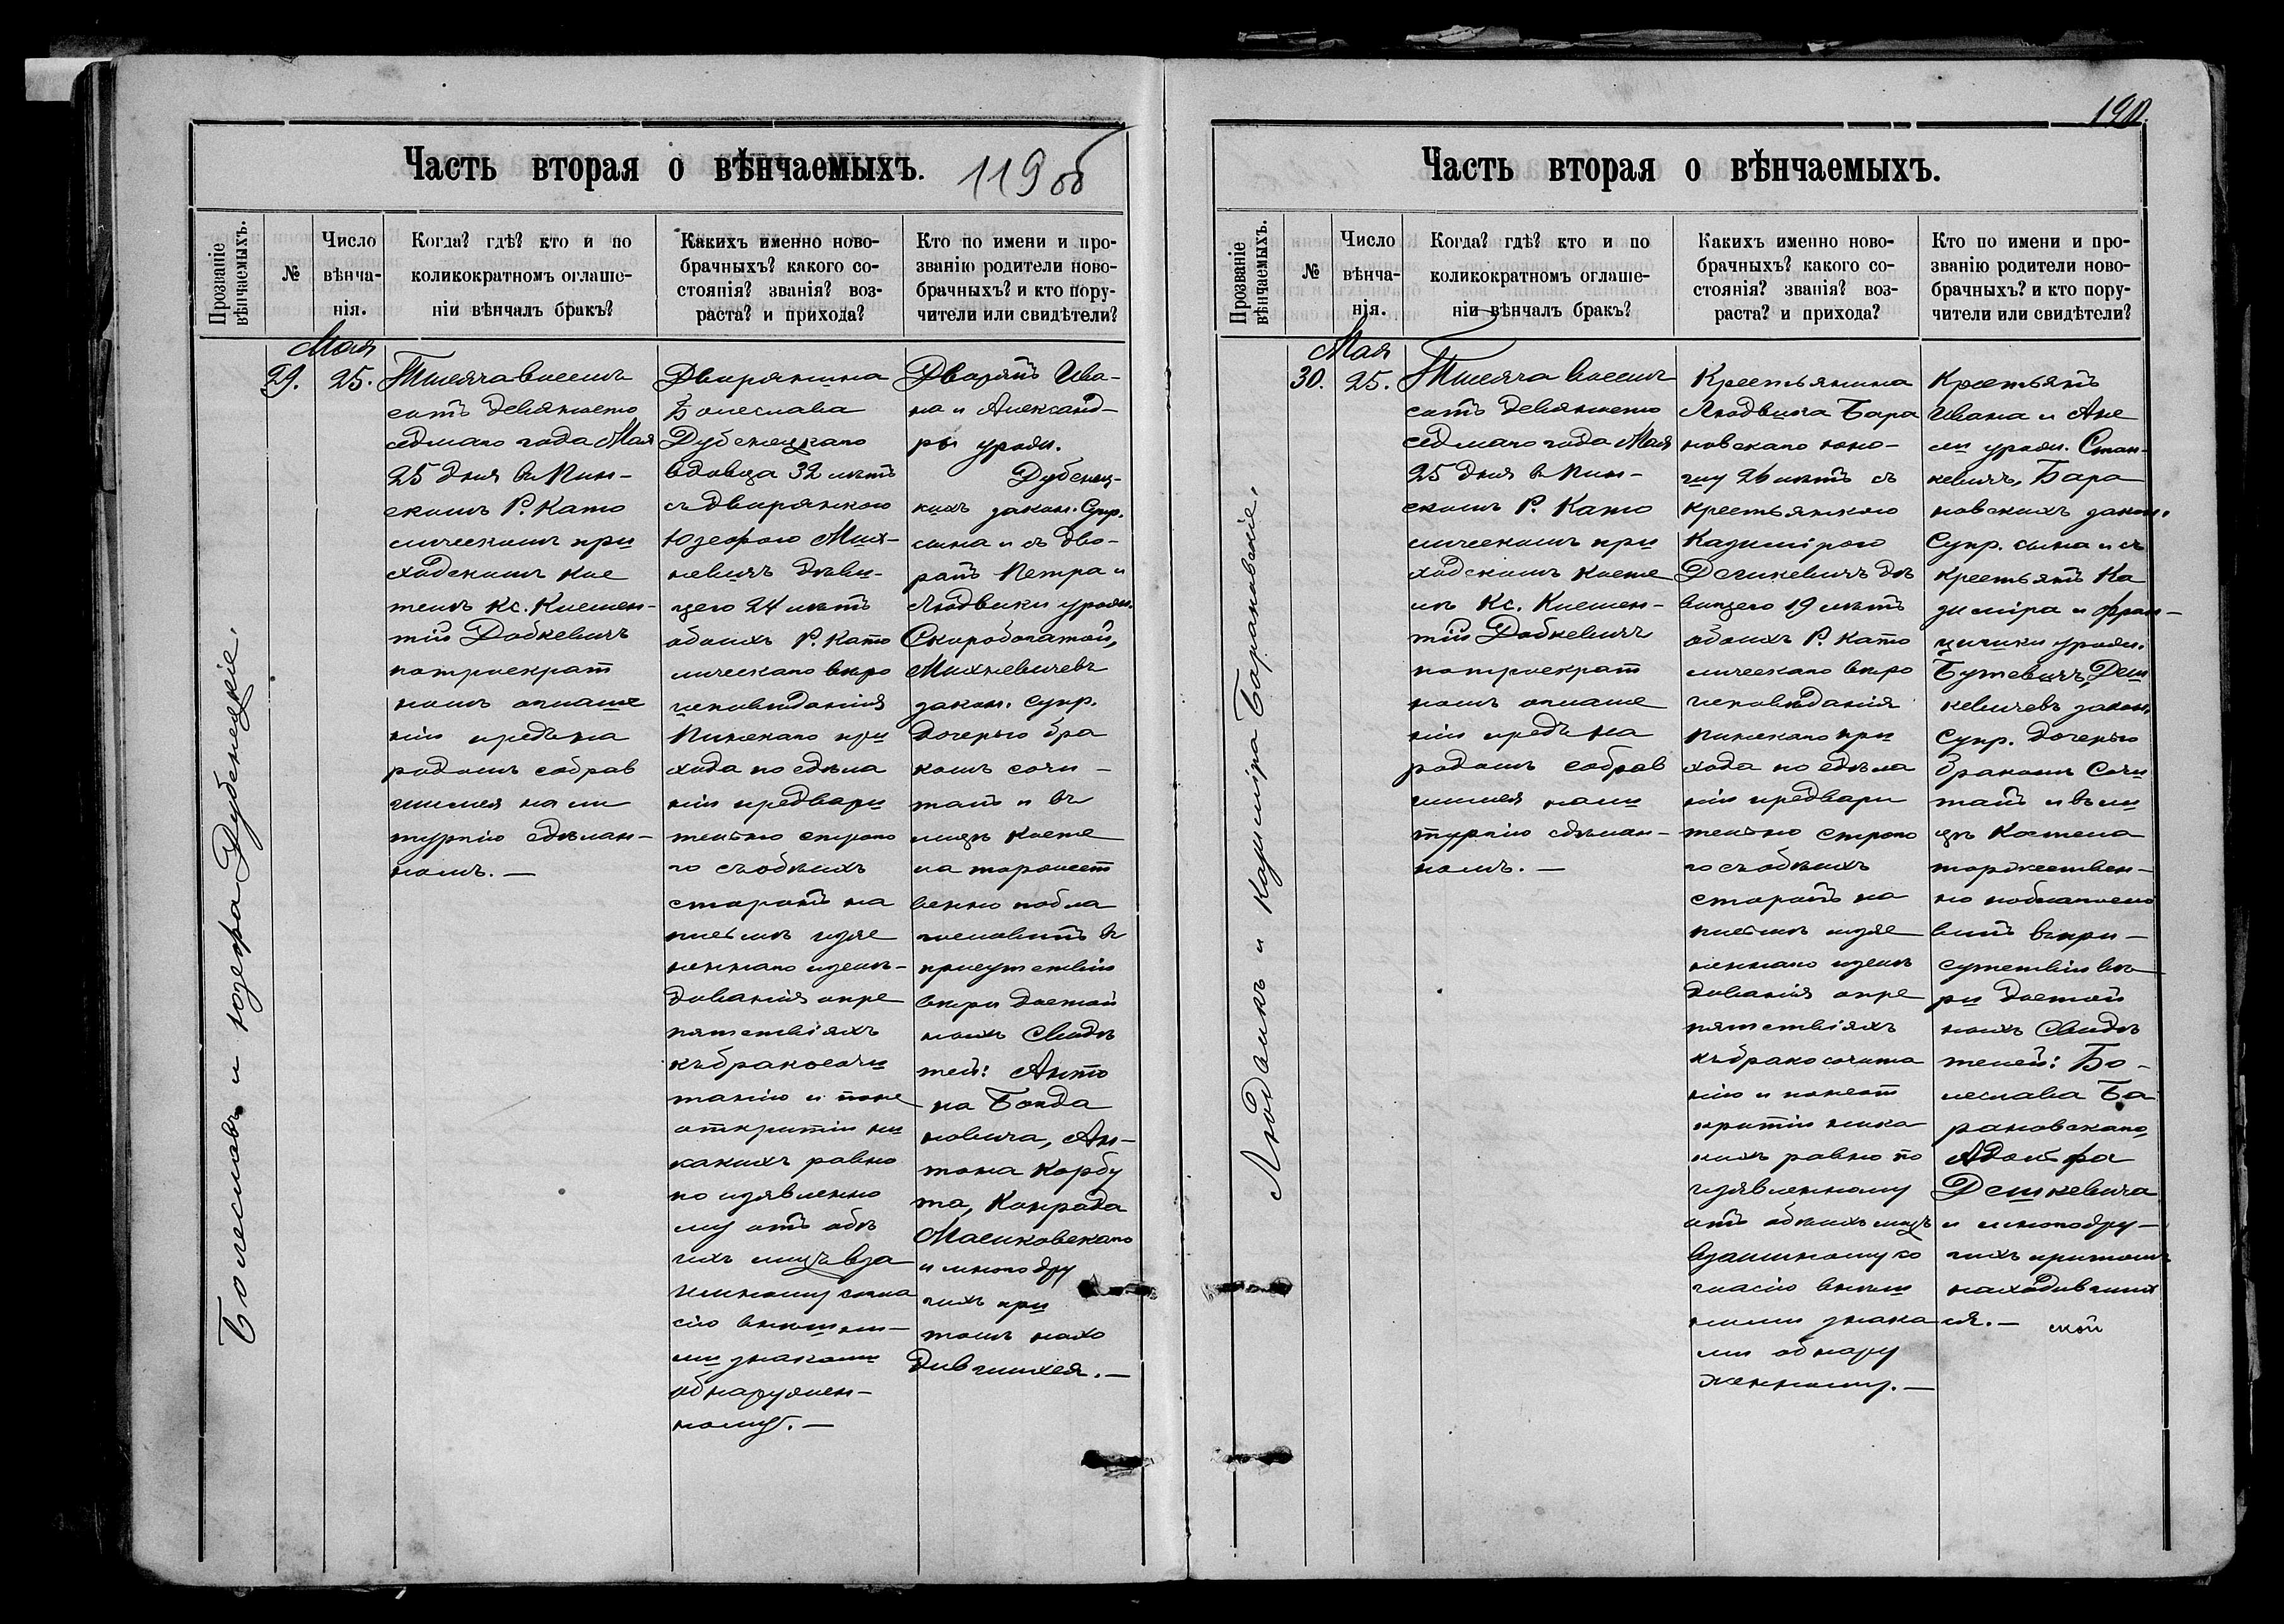 Часть вторая о вѣнчаемыхъ.
119 об
Прозваніе
вѣнчаемыхъ.
№
Число
вѣнча-
нія.
Когда? гдѣ? кто и по
коликократномъ оглаше-
ніи вѣнчалъ бракъ?
Какихъ именно ново-
брачныхъ? какого со-
стоянія? званія? воз-
раста? и прихода?
Кто по имени и про-
званію родители ново-
брачныхъ? и кто пору-
чители или свидѣтели?
Болеславъ и Юзефа Дубенецкіе.
Мая
29.
25.
Тысяча восемь
сотъ девяносто
седмаго года Мая
25 дня въ Пин-
скомъ Р. Като
лическомъ при
ходскомъ кос
телѣ Кс. Клемен-
тій Добкевичъ
потроекрат
номъ оглаше
ніи предъ на
родомъ собрав
шимся на ли
тургію сдѣлан-
номъ. —
Дворянина
Болеслава
Дубенецкаго
вдовца 32 лѣтъ
съ дворянкою
Юзефою Мих-
невичъ дѣви-
цею 24 лѣтъ
обоихъ Р. Като
лическаго вѣро
исповѣданія
Пинскаго при
хода по сдѣла
ніи предвари
тельно строго
го съ обѣихъ
сторонъ на
письмѣ изяс
неннаго изслѣ-
дованія опре
пятствіяхъ
къ бракосочи
танію и поне
открытіи ни
какихъ равно
по изявленно
му отъ обѣ
ихъ лицъ вза
имному согла
сію внѣшни-
ми знаками
обнаружен-
ному. —
Дворянъ Ива-
на и Александ-
ры урожд.
Дубенец-
кихъ закон. Супр.
сына и съ дво-
рянъ Петра и
Людвики урожд.
Скоробогатой,
Михневичевъ
закон. супр.
дочерью бра
комъ соче-
талъ и въ
лицѣ косте
ла торжест
венно побла
гословилъ въ
присутствіи
вѣры достой
ныхъ Свидѣ
телей: Анто
на Богда
новича, Ан-
тона Корбу
та, Конрада
Масиковскаго
и много дру
гихъ при
томъ нахо
дившихся. —
120.
Часть вторая о вѣнчаемыхъ.
Прозваніе
вѣнчаемыхъ.
№
Число
вѣнча-
нія.
Когда? гдѣ? кто и по
коликократномъ оглаше-
ніи вѣнчалъ бракъ?
Какихъ именно ново-
брачныхъ? какого со-
стоянія? званія? воз-
раста? и прихода?
Кто по имени и про-
званію родители ново-
брачныхъ? и кто пору-
чители или свидѣтели?
Людвикъ и Казиміра Барановскіе.
Мая
30.
25.
Тысяча восемь
сотъ девяносто
седмаго года Мая
25 дня въ Пин-
скомъ Р. Като
лическомъ при
ходскомъ косте
лѣ Кс. Клемен-
тій Добкевичъ
потроекрат
номъ оглаше
ніи предъ на
родомъ собрав
шимся на ли
тургію сдѣлан-
номъ. —
Крестьянина
Людвига Бара
новскаго юно-
шу 26 лѣтъ съ
крестьянкою
Казимірою
Дешкевичъ дѣ
вицею 19 лѣтъ
обоихъ Р. Като
лическаго вѣро
исповѣданія
Пинскаго при
хода по сдѣла
ніи предвари
тельно строго
го съ обѣихъ
сторонъ на
письмѣ изяс
неннаго изслѣ
дованія опре
пятствіяхъ
къ бракосочета
нію и понеот
крытіи ника
кихъ равно по
изявленному
отъ обѣихъ лицъ
взаимному со
гласію внѣш
ними знака
ми обнару
женному. —
Крестьянъ
Ивана и Ане
ли урожд. Стан-
кевичъ, Бара
новскихъ закон.
Супр. сына и съ
крестьянъ Ка
зиміра и Фран-
цишки урожд.
Бутевичъ, Деш
кевичевъ закон.
Супр. дочерью
бракомъ Соче
талъ и въ ли
цѣ Костела
торжествен-
но поблагосло
вилъ въ при-
сутствіи вѣ
ры достой
ныхъ Свидѣ
телей: Бо-
леслава Ба
рановскаго,
Адольфа
Дешкевича
и много дру-
гихъ притомъ
находившихъ
ся. —
ской